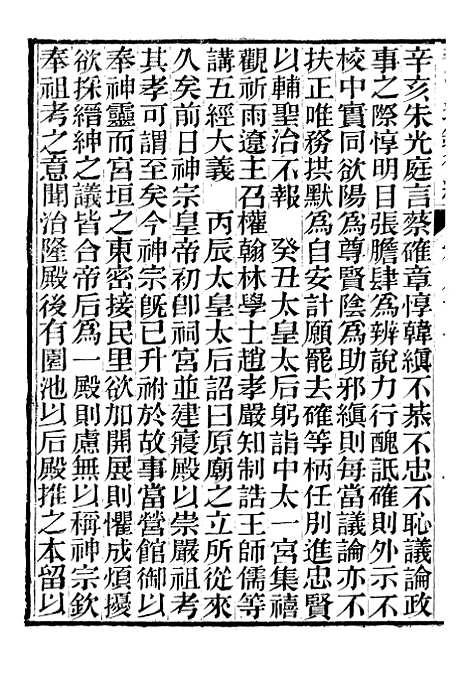 辛亥朱光庭言蔡確章惇韓縝不恭不忠不恥議論政
事之際惇明目張膽肆為辨說力行醜詆確則外示不
校中實同欲陽為尊賢陰為助邪縝則每當議論亦不
扶正唯務拱默為自安計願罷去確等柄任別進忠賢
以輔聖治不報　癸丑太皇太后躬詣中太一宮集禧
觀祈雨遼主召權翰林學士趙孝嚴知制誥王師儒等
講五經大義　丙辰太皇太后詔曰原廟之立所從來
久矣前日神宗皇帝初卽祠宮並建寢殿以崇嚴祖考
其孝可謂至矣今神宗旣已升祔於故事當營館御以
奉神靈而宮垣之東密接民里欲加開展則懼成煩擾
欲採縉紳之議皆合帝后為一殿則慮無以稱神宗欽
奉祖考之意聞治隆殿後有園池以后殿推之本留以